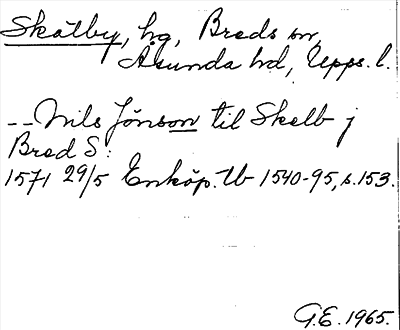 Skälby, hg, Breds sn,
Åsunda hd, Upps. l.
-- Nils Jönson til Skelb j
Bred S:
1571 29/5 Enköp. tb 1540-95, s. 153.
G.E. 1965.